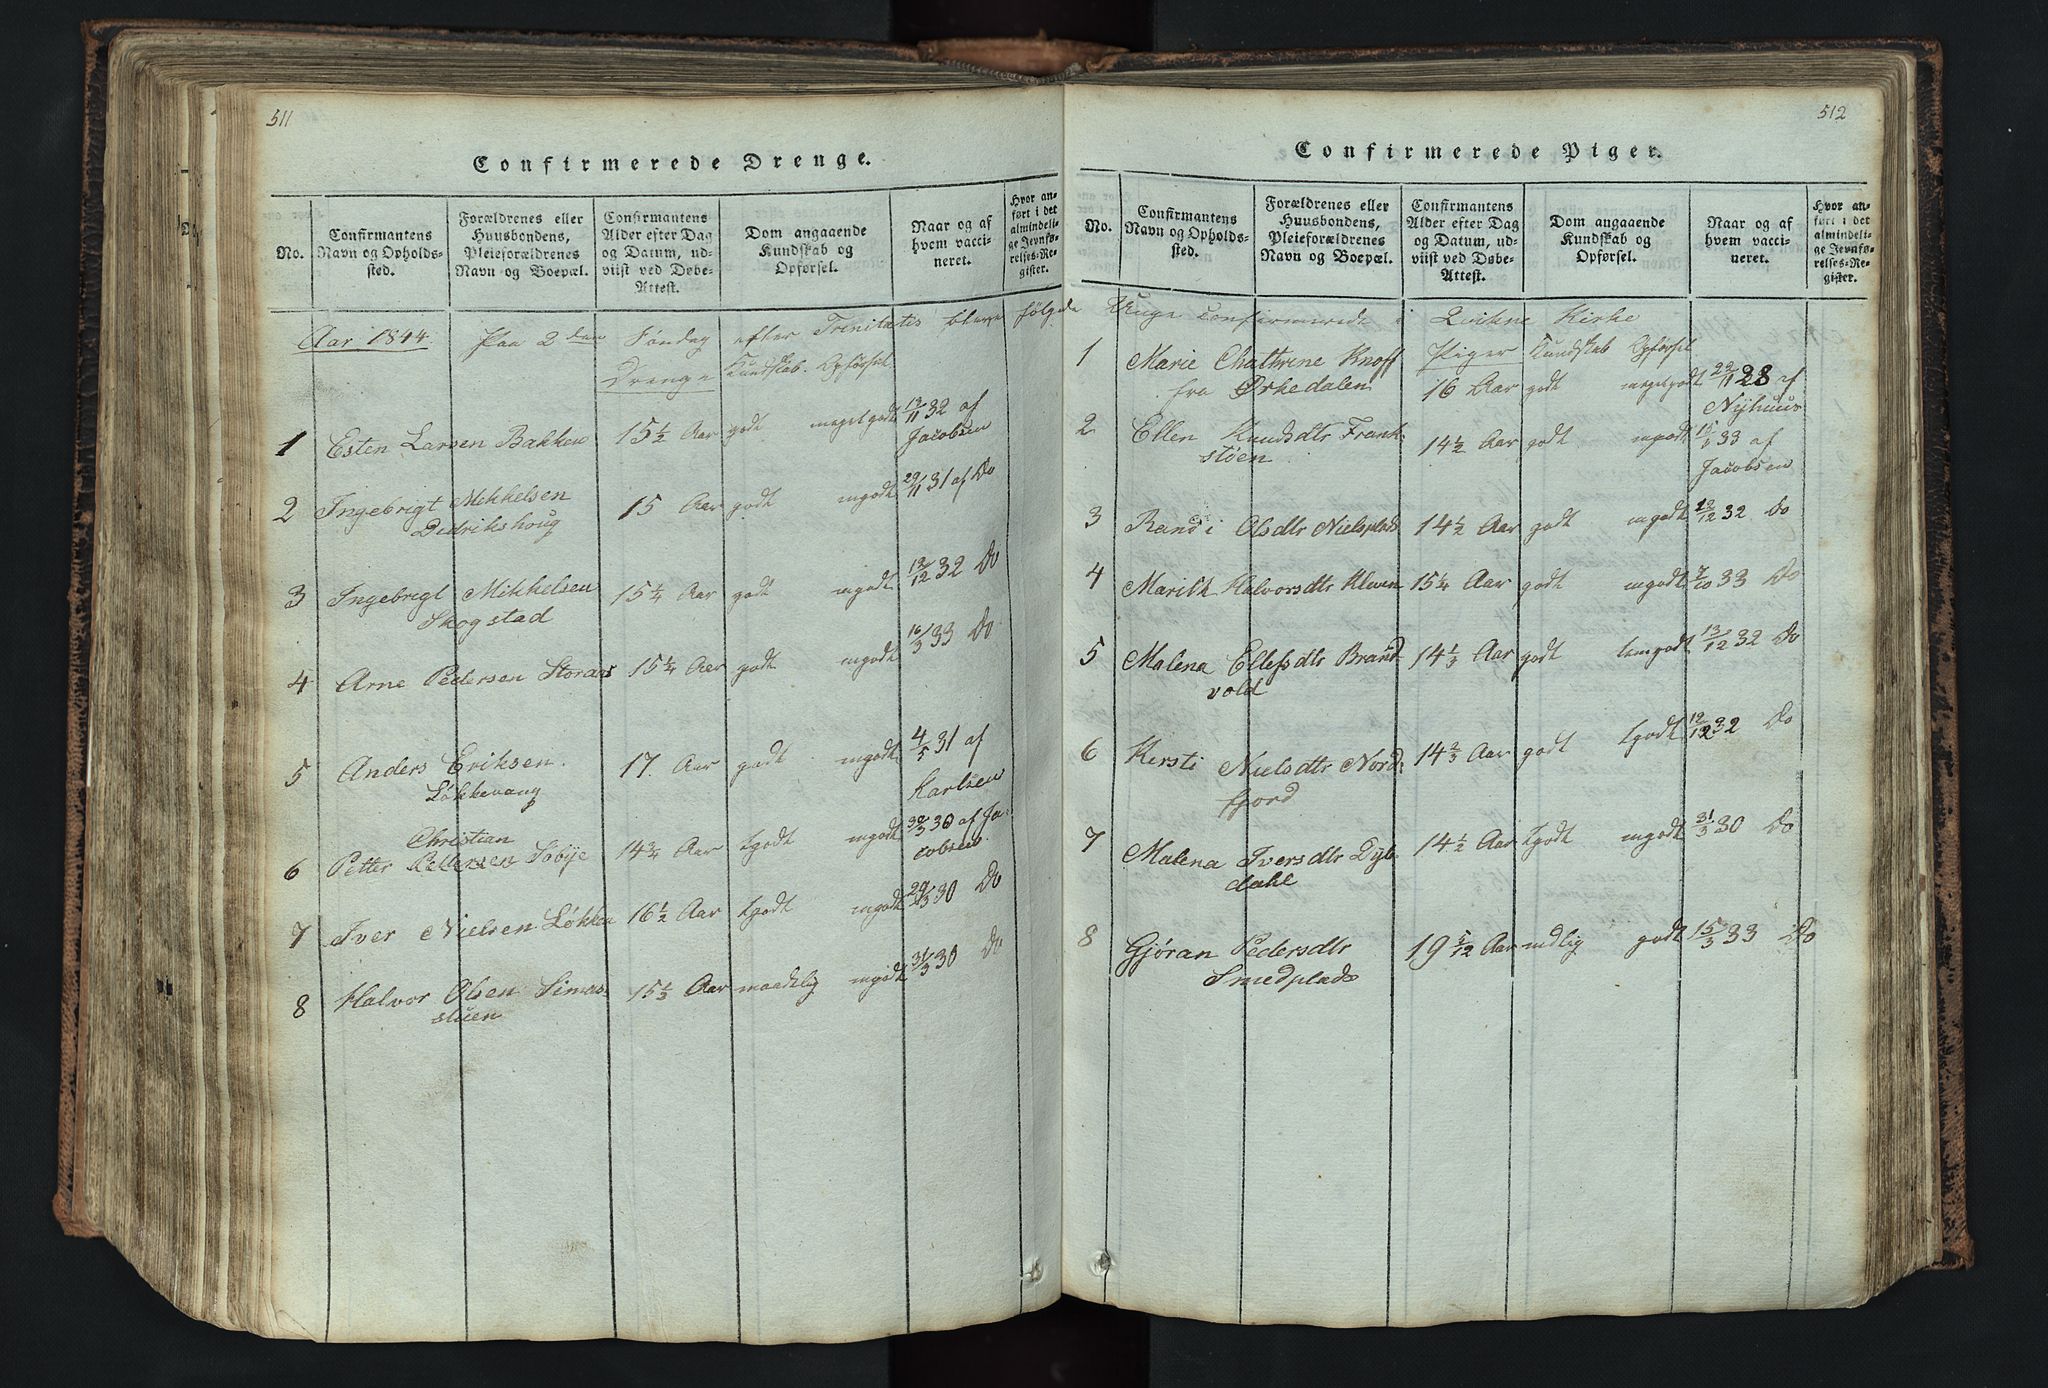 511
Confirmerede Drenge.
No.
Confirmantens Navn og Opholds-sted.
Forældrenes eller Huusbondens, Pleieforældrenes Navn og Boepæl.
Confirmantens Alder efter Dag og Datum, ud-viist ved Døbe-Attest.
Dom angaaende Kundskab og Opførsel.
Naar og af hvem vacci-neret.
Hvor an-ført i det almindeli-ge Jevnfø-relses-Re-gister.
Aar 1844. Paa 2den Søndag efter Trinitatis bleve følgende Unge confirmerede i Qvikne Kirke
Drenge Kundskab. Opførsel
1 Esten Larsen Bakken 15 1/2 Aar godt megetgodt 12/11 32 af Jacobsen
2 Ingebrigt Mikkelsen Didrikshoug 15 Aar godt mgodt 29/11 31 af Do
3 Ingebrigt Mikkelsen Skogstad 15 1/4 Aar godt mgodt 13/12 32 Do
4 Arne Pedersen Storaas 15 1/4 Aar godt mgodt 16/3 33 Do
5 Anders Eriksen Løkkevang 17 Aar godt mgodt 4/5 31 af Karlsen
6 Petter Christian Pettersen Søbye 14 3/4 Aar tgodt mgodt 30/3 30 af Jacobsen
7 Iver Nielsen Løkken 16 1/2 Aar tgodt mgodt 29/3 30 Do
8 Halvor Olsen Simensstuen 15 1/3 Aar maadelig mgodt 31/3 30 Do
512
Confirmerede Piger.
No.
Confirmantens Navn og Opholds-sted.
Forældrenes eller Huusbondens, Pleieforældrenes Navn og Boepæl.
Confirmantens Alder efter Dag og Datum, ud-viist ved Døbe-Attest.
Dom angaaende Kundskab og Opførsel.
Naar og af hvem vacci-neret.
Hvor an-ført i det almindeli-ge Jevnfø-relses-Re-gister.
Piger Kundskab Opførsel
1 Marie Chathrine Knoff fra Ørkedalen 16 Aar godt megetgodt 22/11 28 af Nyhuus
2 Ellen Knudsdtr Frankstøen 14 1/2 Aar godt mgodt 33 af Jacobsen
3 Randi Olsdtr Nielsplads 14 1/2 Aar godt mgodt 12/12 32 Do
4 Marith Halvorsdtr Kleven 15 1/4 Aar godt mgodt 7/10 33 Do
5 Malena Ellefsdtr Brandvold 14 1/3 Aar godt temgodt 13/12 32 Do
6 Kersti Nielsdtr Nordfjord 14 2/3 Aar godt tgodt 12/12 32 Do
7 Malena Iversdtr Dybdahl 14 1/2 Aar tgodt mgodt 31/3 30 Do
8 Gjøran Pedersdtr Smedplads 19 5/12 Aar mdlig godt 15/3 33 Do